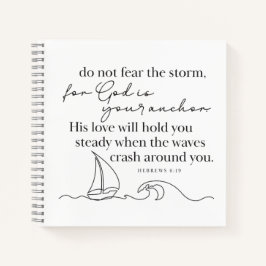 do not fear the storm,
for God is
your anchor.
His love will hold you
steady when the waves
crash around you.
HEBREWS 6:19